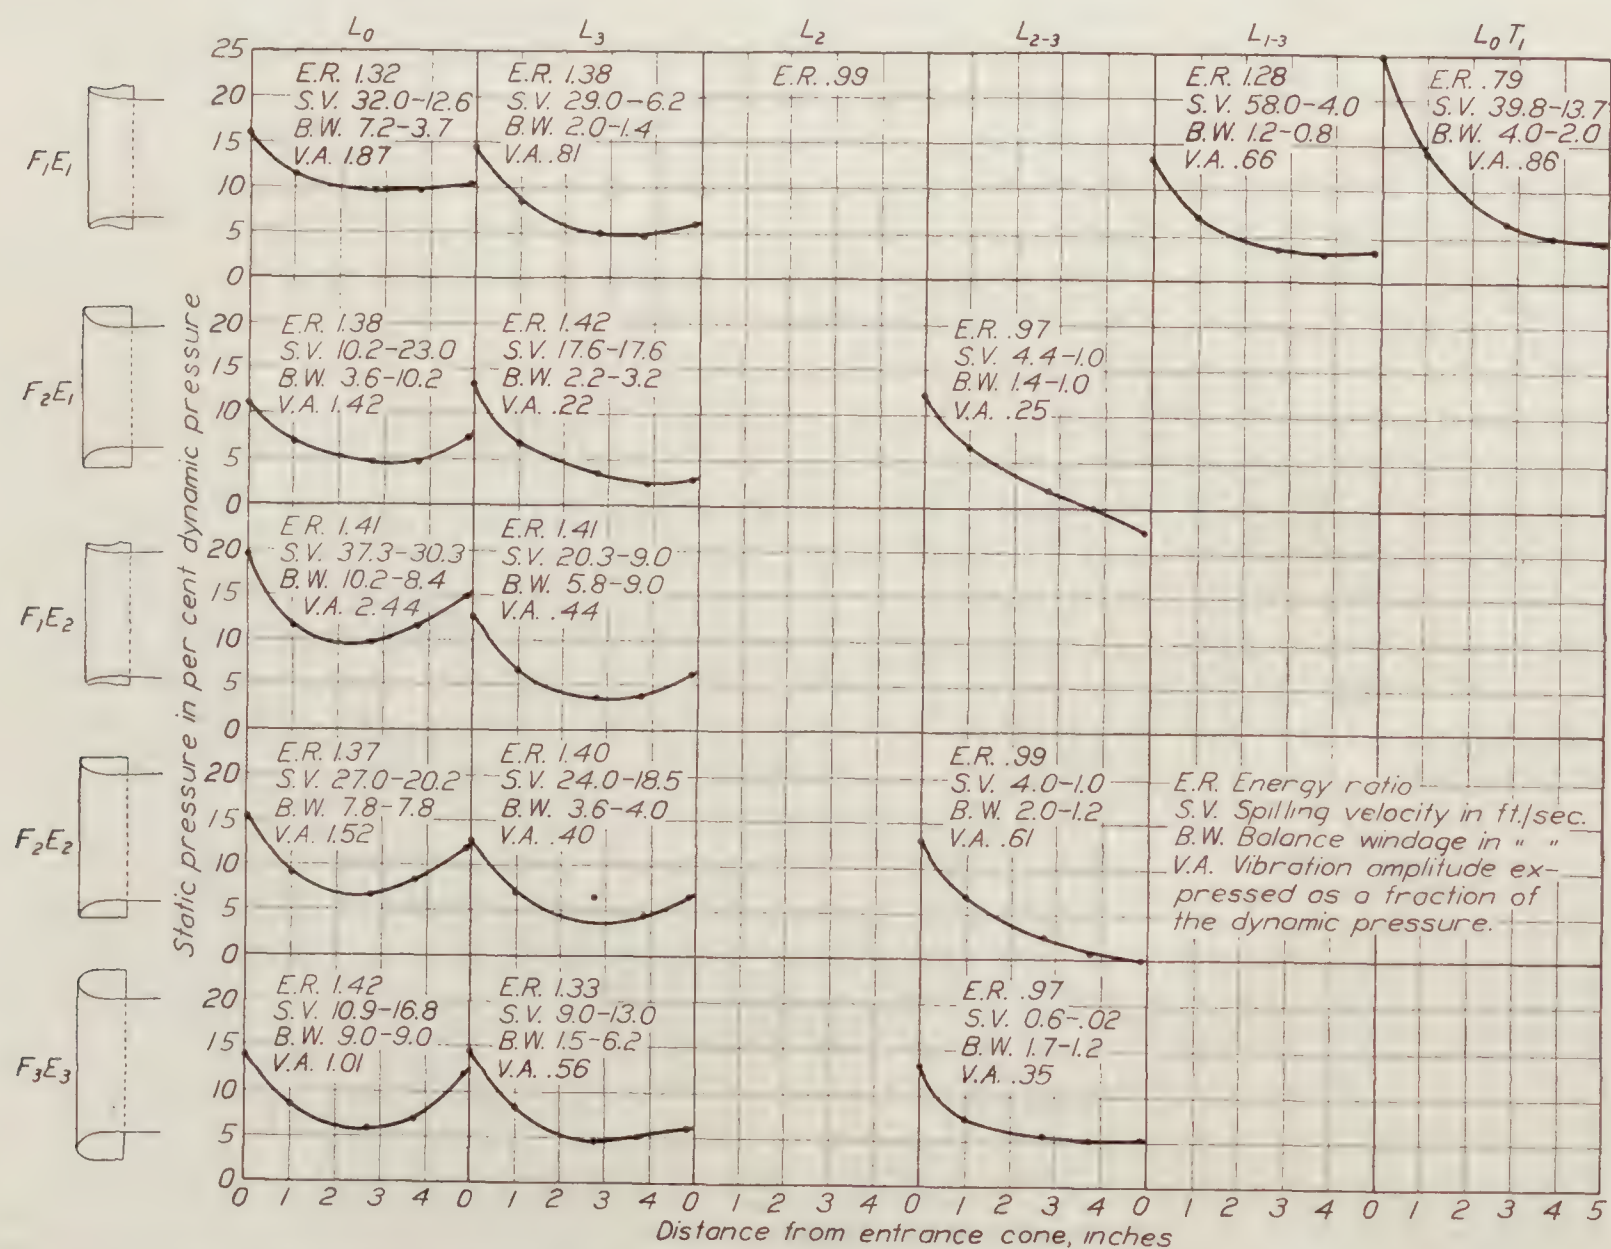 L₀ L₃ L₂ L₂₋₃ L₁₋₃ L₀ T₁
F₁E₁
25
20
15
10
5
0
E.R. 1.32
S.V. 32.0-12.6
B.W. 7.2-3.7
V.A. 1.87
E.R. 1.38
S.V. 29.0-6.2
B.W. 2.0-1.4
V.A. .81
E.R. .99
E.R. 1.28
S.V. 58.0-4.0
B.W. 1.2-0.8
V.A. .66
E.R. .79
S.V. 39.8-13.7
B.W. 4.0-2.0
V.A. .86
F₂E₁
20
15
10
5
0
E.R. 1.38
S.V. 10.2-23.0
B.W. 3.6-10.2
V.A. 1.42
E.R. 1.42
S.V. 17.6-17.6
B.W. 2.2-3.2
V.A. .22
E.R. .97
S.V. 4.4-1.0
B.W. 1.4-1.0
V.A. .25
Static pressure in per cent dynamic pressure
F₁E₂
20
15
10
5
0
E.R. 1.41
S.V. 37.3-30.3
B.W. 10.2-8.4
V.A. 2.44
E.R. 1.41
S.V. 20.3-9.0
B.W. 5.8-9.0
V.A. .44
F₂E₂
20
15
10
5
0
E.R. 1.37
S.V. 27.0-20.2
B.W. 7.8-7.8
V.A. 1.52
E.R. 1.40
S.V. 24.0-18.5
B.W. 3.6-4.0
V.A. .40
E.R. .99
S.V. 4.0-1.0
B.W. 2.0-1.2
V.A. .61
E.R. Energy ratio
S.V. Spilling velocity in ft./sec.
B.W. Balance windage in " "
V.A. Vibration amplitude ex-
pressed as a fraction of
the dynamic pressure.
F₃E₃
20
15
10
5
0
E.R. 1.42
S.V. 10.9-16.8
B.W. 9.0-9.0
V.A. 1.01
E.R. 1.33
S.V. 9.0-13.0
B.W. 1.5-6.2
V.A. .56
E.R. .97
S.V. 0.6-.02
B.W. 1.7-1.2
V.A. .35
0 1 2 3 4 0 1 2 3 4 0 1 2 3 4 0 1 2 3 4 0 1 2 3 4 0 1 2 3 4 5
Distance from entrance cone, inches